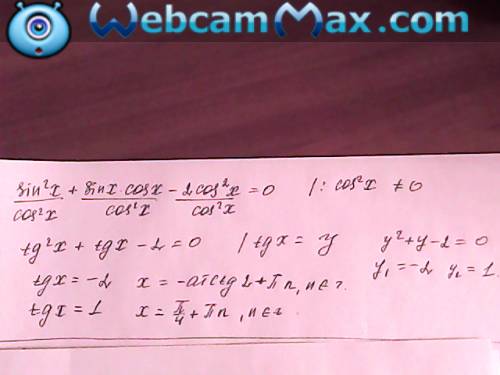 WebcamMax.com
sin²x/cos²x + sinx·cosx/cos²x − 2cos²x/cos²x = 0 /: cos²x ≠ 0
tg²x + tgx − 2 = 0 / tgx = y y² + y − 2 = 0
tgx = −2 x = −arctg2 + πn, n∈z. y₁ = −2 y₂ = 1.
tgx = 1 x = π/4 + πn, n∈z